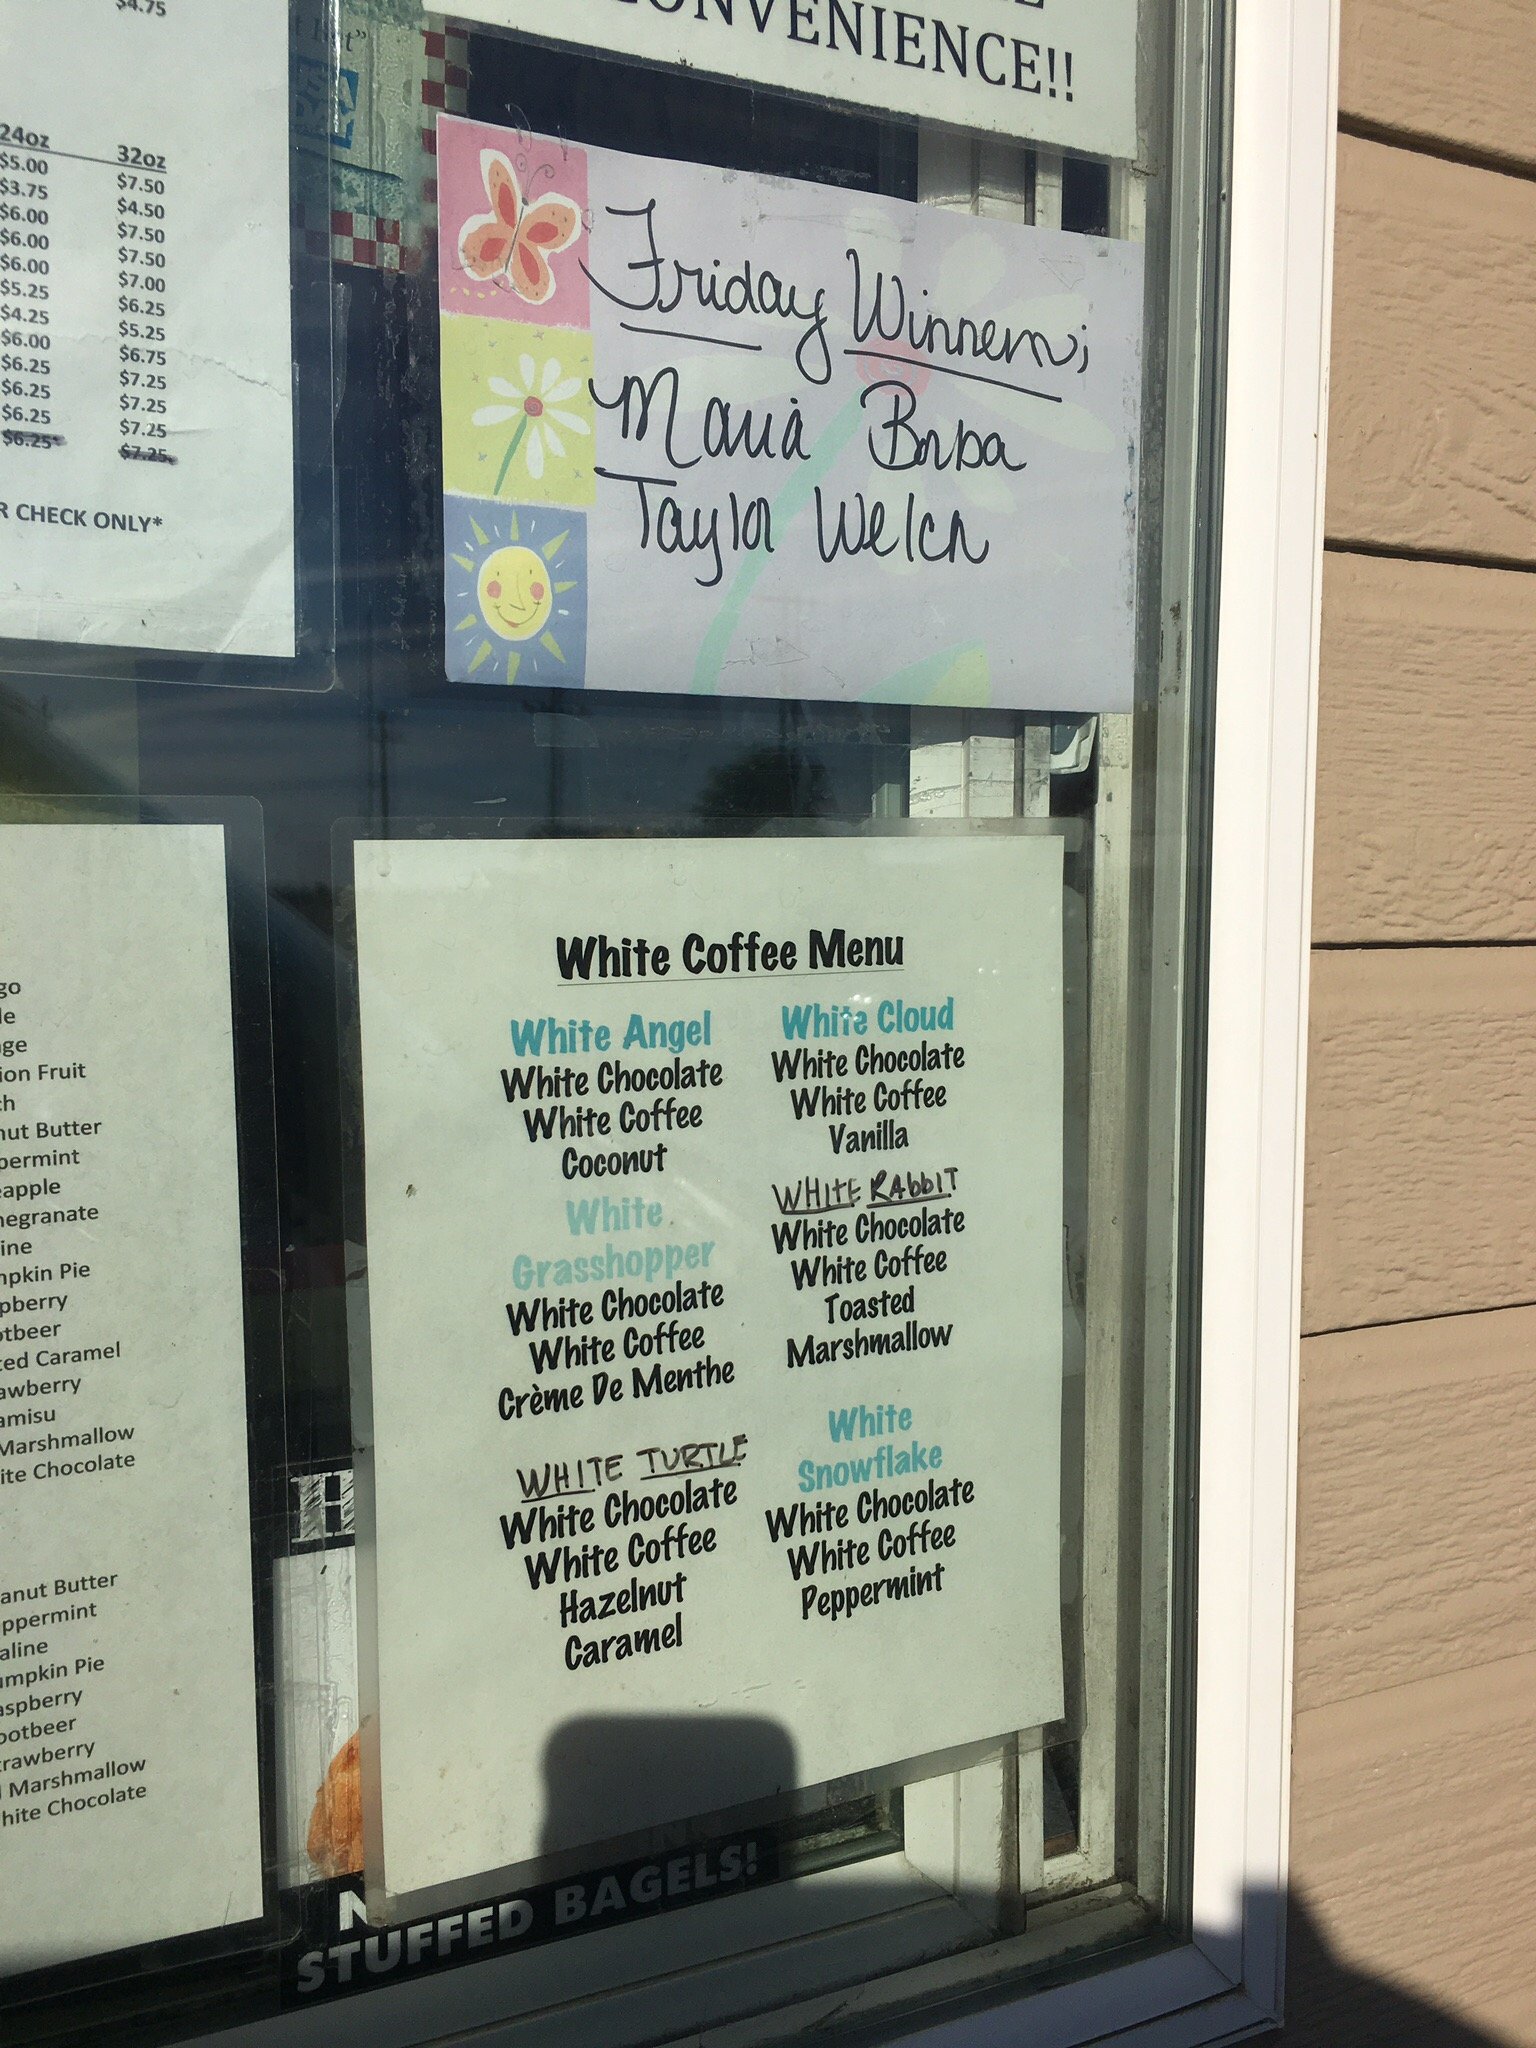 $4.75
24oz 32oz
$5.00 $7.50
$3.75 $4.50
$6.00 $7.50
$6.00 $7.50
$6.00 $7.00
$5.25 $6.25
$4.25 $5.25
$6.00 $6.75
$6.25 $7.25
$6.25 $7.25
$6.25 $7.25
$6.25* $7.25
R CHECK ONLY*
CONVENIENCE!!
Friday Winners;
Maria Borba
Taylor Welch
go
le
ge
ion Fruit
ch
nut Butter
permint
eapple
negranate
line
mpkin Pie
pberry
otbeer
ted Caramel
awberry
amisu
Marshmallow
ite Chocolate
anut Butter
ppermint
aline
umpkin Pie
aspberry
ootbeer
trawberry
Marshmallow
hite Chocolate
White Coffee Menu
White Angel
White Chocolate
White Coffee
Coconut
White
Grasshopper
White Chocolate
White Coffee
Crème De Menthe
WHITE TURTLE
White Chocolate
White Coffee
Hazelnut
Caramel
White Cloud
White Chocolate
White Coffee
Vanilla
WHITE RAbbIT
White Chocolate
White Coffee
Toasted
Marshmallow
White
Snowflake
White Chocolate
White Coffee
Peppermint
H
N
STUFFED BAGELS!